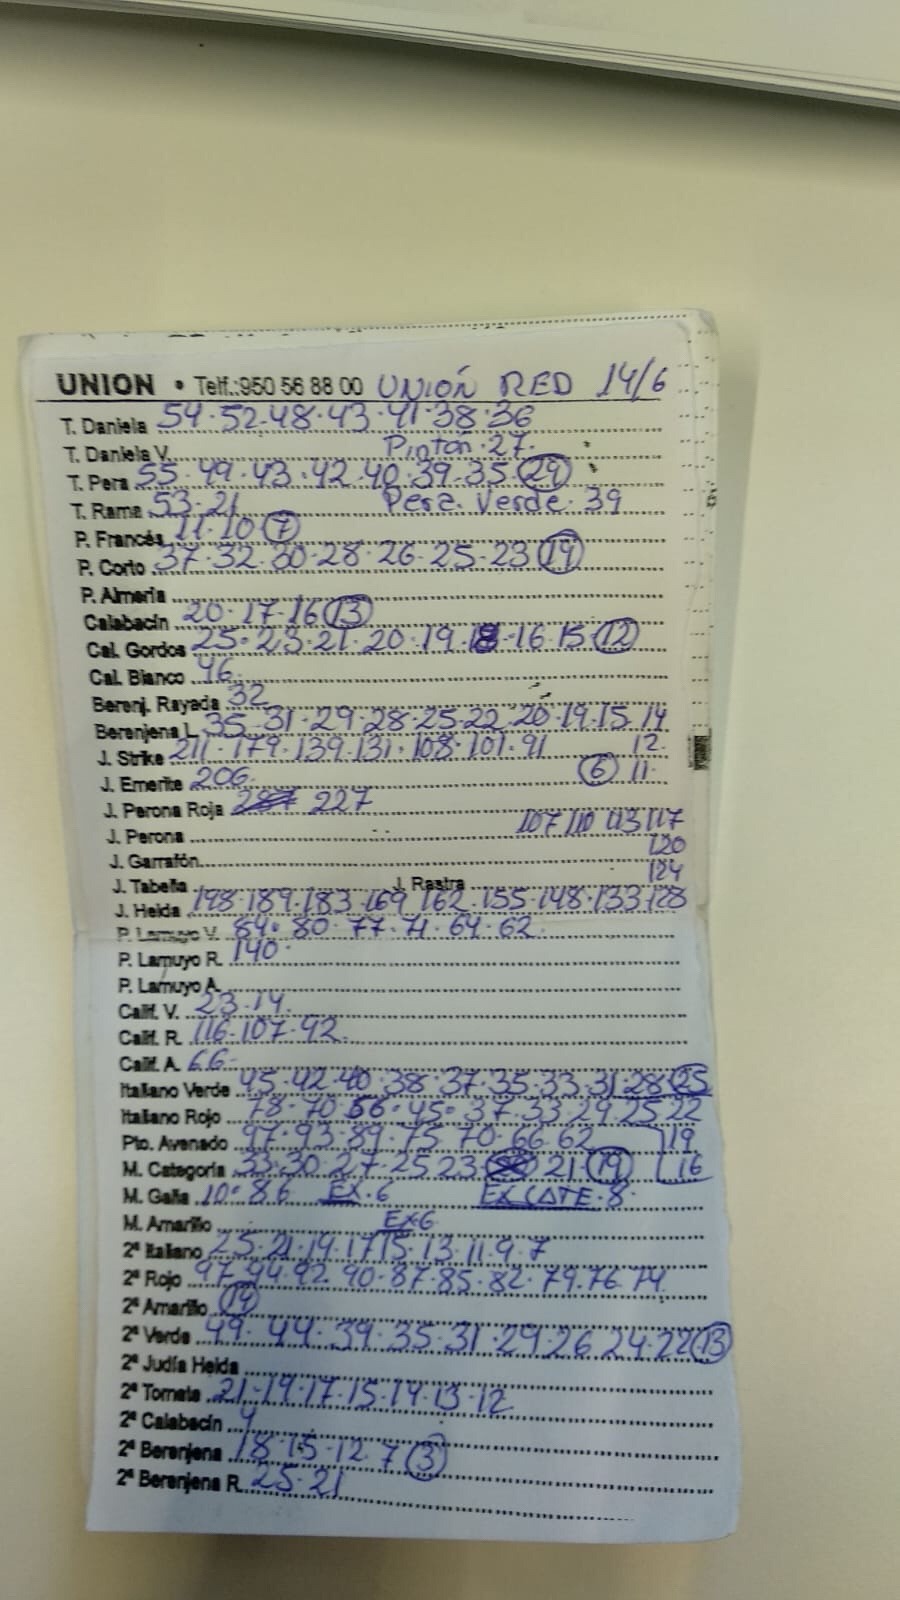 UNION • Telf.:950 56 88 00 UNIÓN RED 14/6
T. Daniela 54·52·48·43·41·38·36
T. Daniela V. Pintón·27·
T. Pera 55·49·43·42·40·39·35·
T. Rama 53·21 Pera Verde·39
P. Francés 11·10 7
P. Corto 37·32·30·28·26·25·23 19
P. Almería
Calabacín 20·17·16 13
Cal. Gordos 25·23·21·20·19·18·16·15 12
Cal. Blanco 46
Berenj. Rayada 32
Berenjena L 35·31·29·28·25·22·20·19·15·14
J. Strike 211·179·139·131·108·101·91 12·
J. Emerite 206 6 11·
J. Perona Roja 227
J. Perona 107 110 113 117
J. Garrafón 120
J. Tabella J. Rastra 124
J. Helda 198·189·183·169 162·155·148·133·128
P. Lamuyo V. 84·80·77·71·64·62
P. Lamuyo R. 140
P. Lamuyo A.
Calif. V. 23·14
Calif. R. 116·107·92
Calif. A. 66
Italiano Verde 45·42·40·38·37·35·33·31·28 25
Italiano Rojo 78·70·56·45·37·33·29·25·22
Pto. Asenado 97·93·89·75·70·66·62 19
M. Categoría 33·30·27·25·23 21 19 16
M. Galia 10·8·6 EX·6 EXCATE·8·
M. Amarillo EX·6
2ª Italiano 25·21·19·17·15·13·11·9·7
2ª Rojo 97·94·92·90·87·85·82·79·76·74
2ª Amarillo 19
2ª Verde 49·44·39·35·31·29·26 24·22 13
2ª Judía Helda
2ª Tomate 21·19·17·15·14·13·12
2ª Calabacín 4
2ª Berenjena 18·15·12·7 3
2ª Berenjena R. 25·21